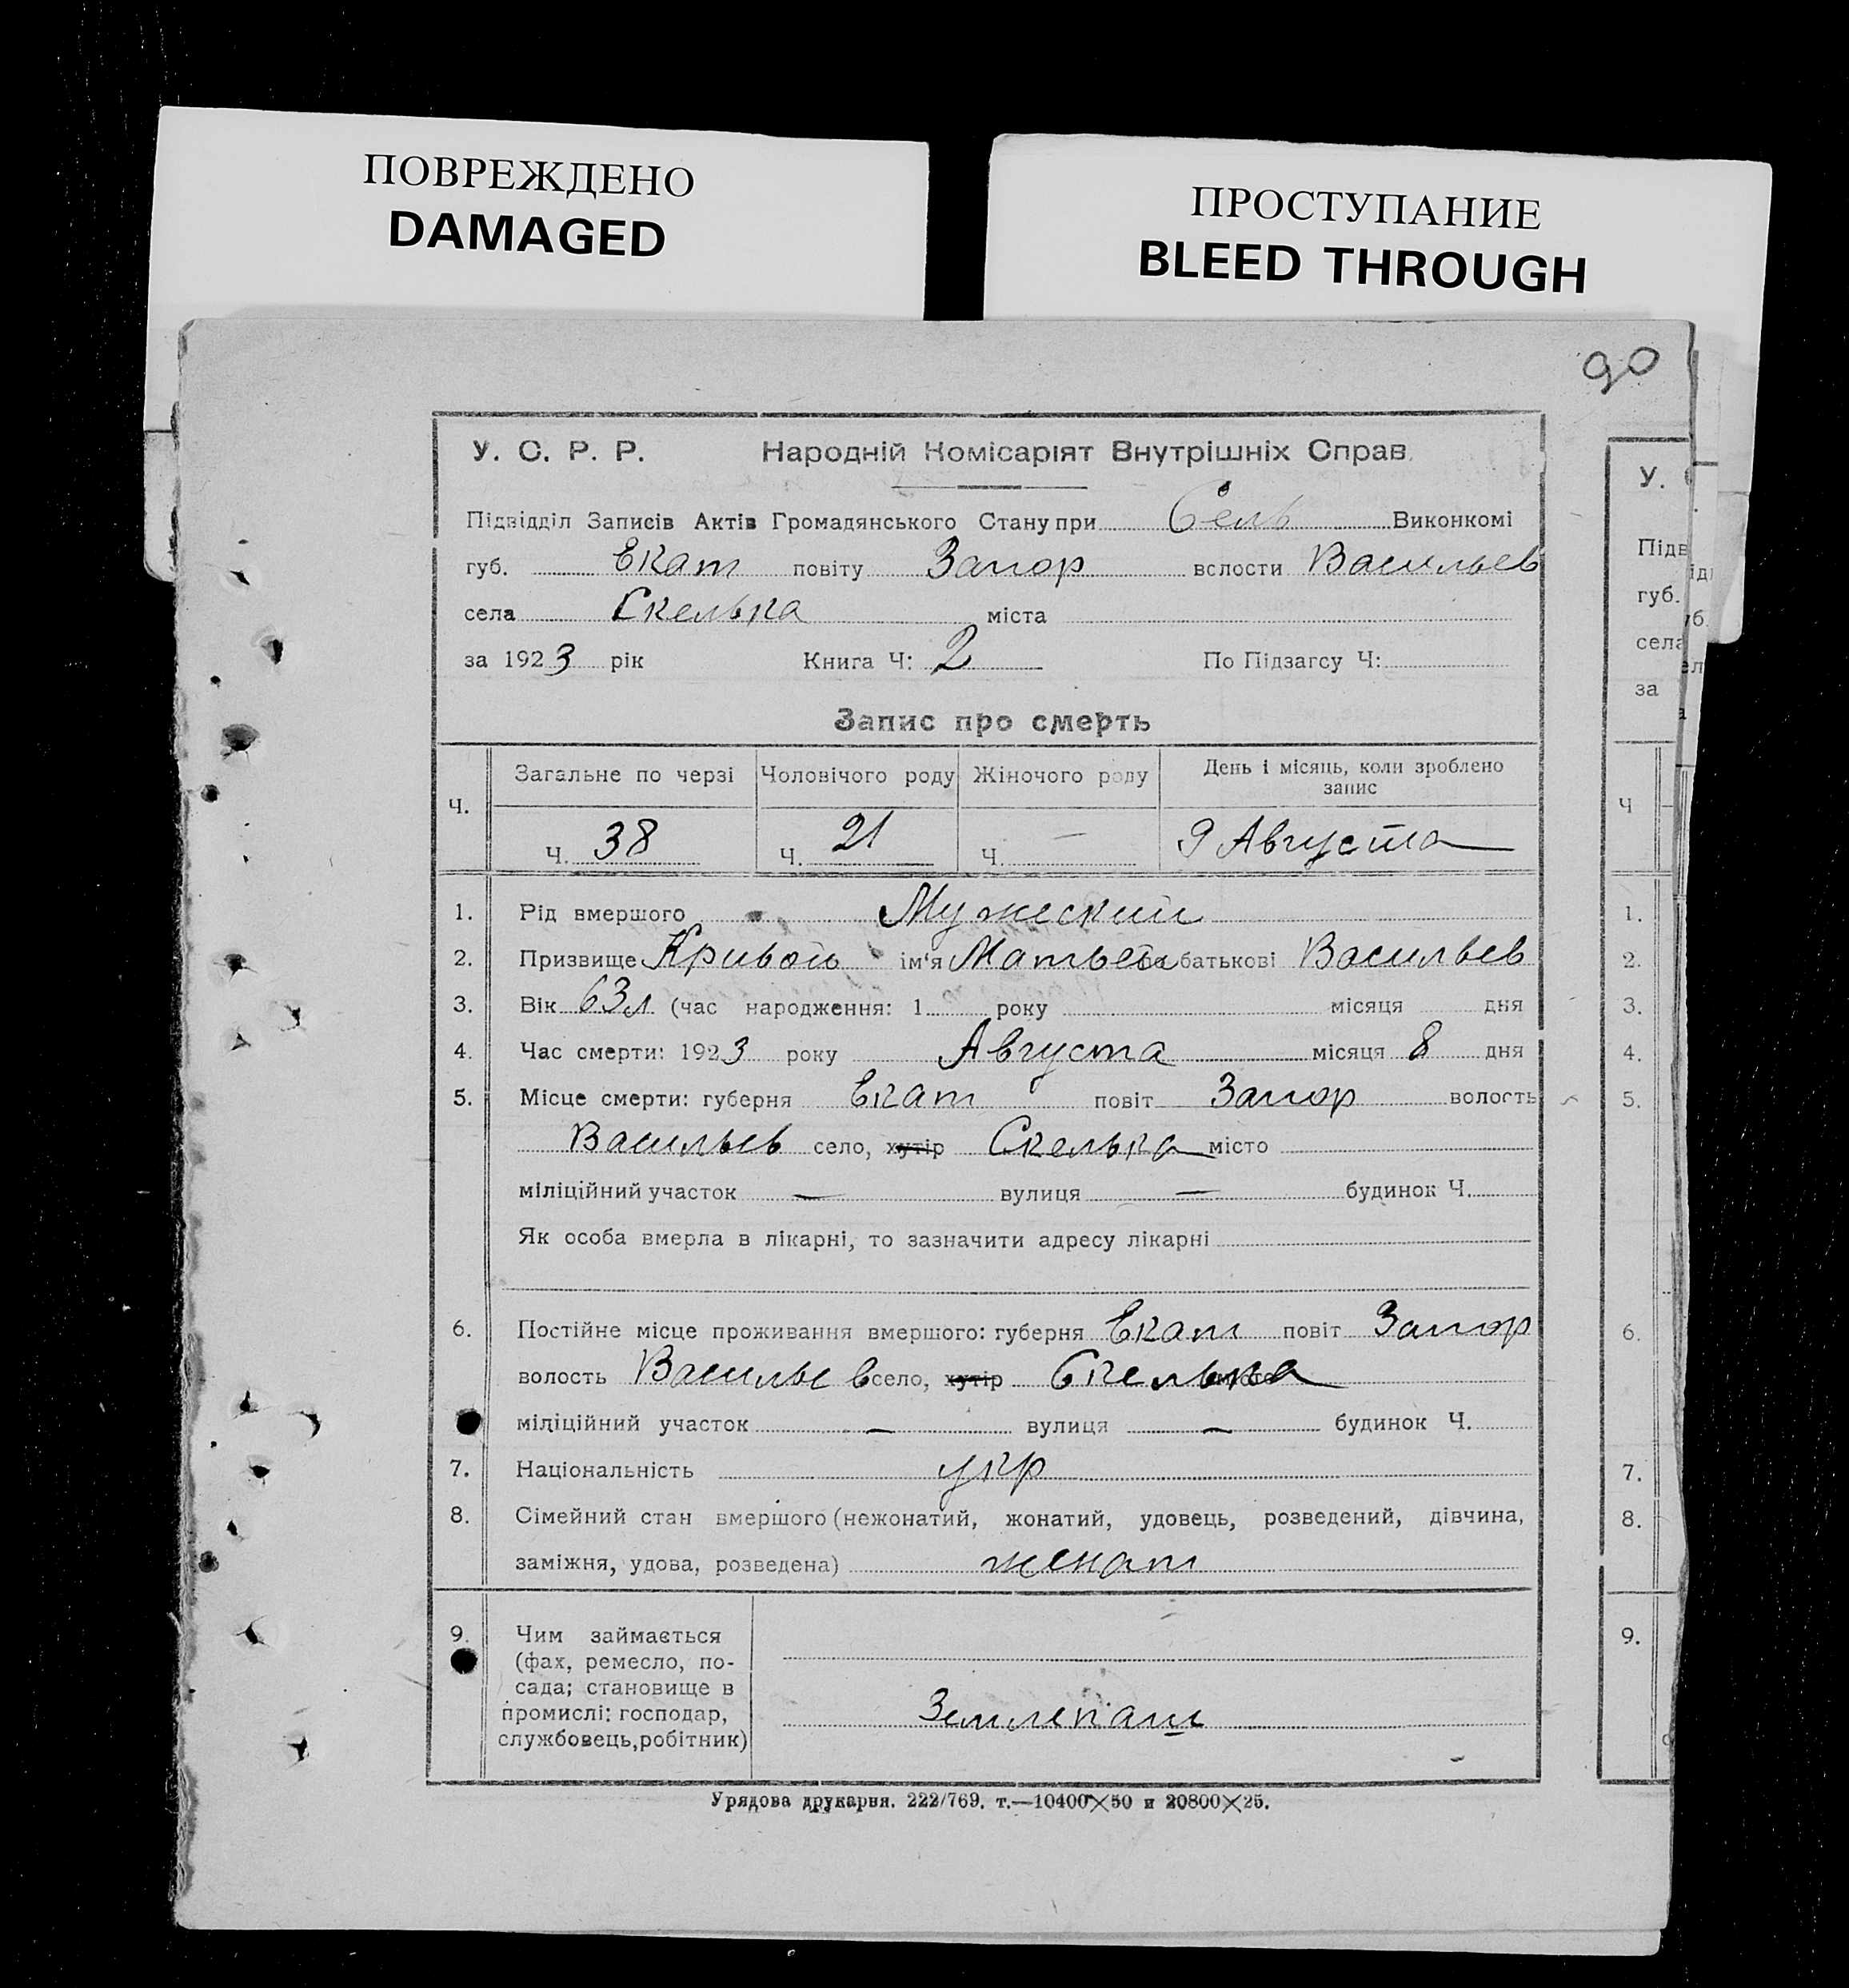 ПОВРЕЖДЕНО
DAMAGED
ПРОСТУПАНИЕ
BLEED THROUGH
90
У. С. Р. Р. Народній Комісаріят Внутрішніх Справ.
Підвідділ Записів Актів Громадянського Стану при Сель Виконкомі
губ. Екат повіту Запор волости Васильев
села Скелька міста
за 1923 рік Книга Ч: 2 По Підзагсу Ч:
Запис про смерть
Ч. Загальне по черзі Чоловічого роду Жіночого роду День і місяць, коли зроблено
запис
Ч. 38 Ч. 21 Ч. — 9 Августа
1. Рід вмершого Мужеский
2. Призвище Кривой ім'я Матвей по батькові Васильев
3. Вік 63 л (час народження: 1 року місяця дня
4. Час смерти: 1923 року Августа місяця 8 дня
5. Місце смерти: губерня Екат повіт Запор волость
Васильев село, хутір Скелька місто
міліційний участок — вулиця — будинок Ч.
Як особа вмерла в лікарні, то зазначити адресу лікарні
6. Постійне місце проживання вмершого: губерня Екат повіт Запор
волость Васильев село, хутір Скелька місто
міліційний участок — вулиця — будинок Ч.
7. Національність укр
8. Сімейний стан вмершого (нежонатий, жонатий, удовець, розведений, дівчина,
заміжня, удова, розведена) женат
9. Чим займається
(фах, ремесло, по-
сада; становище в
промислі: господар,
службовець, робітник)
Землепаш
Урядова друкарня. 222/769. т.—10400×50 и 20800×25.
У.
Підв
губ.
села
за
Ч
1.
2.
3.
4.
5.
6.
7.
8.
9.